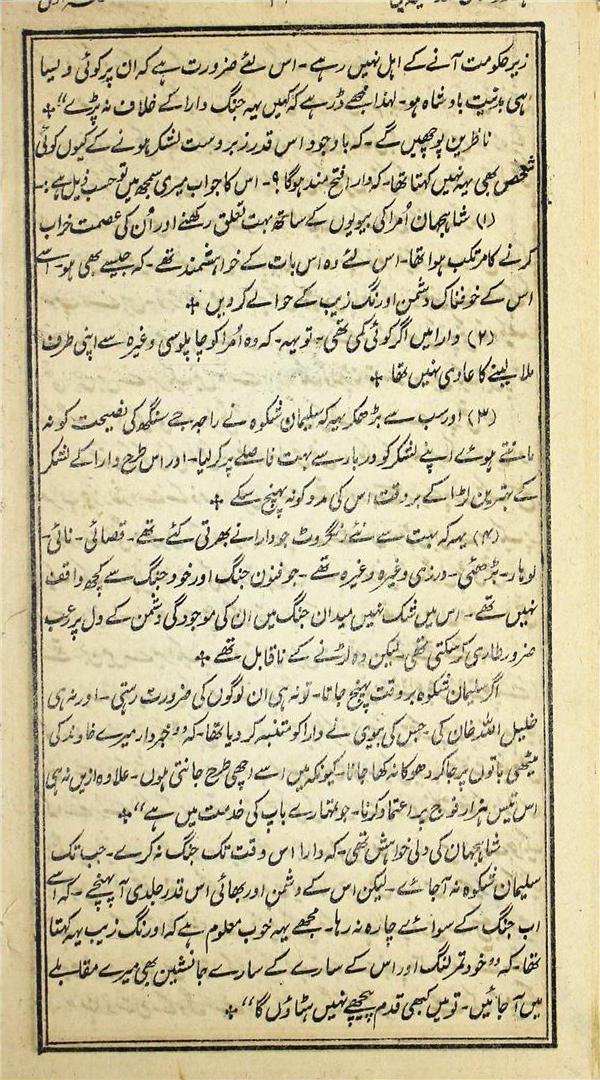 زیر حکومت آنے کے اہل نہیں رہے۔ اس لئے ضرورت ہے کہ ان پر کوئی ویسا
ہی بدنیت بادشاہ ہو۔ لہذا مجھے ڈر ہے کہ کہیں یہ جنگ دارا کے خلاف نہ پڑے“ ÷
ناظرین پوچھیں گے۔ کہ باوجود اس قدر زبردست لشکر ہونے کے کیوں کوئی
شخص بھی یہ نہیں کہتا تھا۔ کہ دارا فتح مند ہوگا؟۔ اس کا جواب میری سمجھ میں تو حسب ذیل ہے :۔
(۱) شاہجہان اُمرا کی بیویوں کے ساتھ بہت تعلق رکھنے اور اُن کی عصمت خراب
کرنے کا مرتکب ہوا تھا۔ اس لئے وہ اس بات کے خواہشمند تھے۔ کہ جیسے بھی ہو۔ اسے
اس کے خوفناک دشمن اورنگ زیب کے حوالے کردیں ÷
(۲) دارا میں اگر کوئی کمی تھی۔ تو یہ۔ کہ وہ اُمرا کو چاپلوسی وغیرہ سے اپنی طرف
ملا لینے کا عادی نہیں تھا ÷
(۳) اور سب سے بڑھکر یہ کہ سلیمان شکوہ نے راجہ جے سنگھ کی نصیحت کو نہ
مانتے ہوئے اپنے لشکر کو دربار سے بہت فاصلے پر کر لیا۔ اور اس طرح دارا کے لشکر
کے بہترین لڑاکے بر وقت اس کی مدد کو نہ پہنچ سکے ÷
(۴) یہ کہ بہت سے نئے رنگروٹ جو دارا نے بھرتی کئے تھے۔ قصائی۔ نائی۔
لوہار۔ بڑھئی۔ درزی وغیرہ وغیرہ تھے۔ جو فنون جنگ اور خود جنگ سے کچھ واقف
نہیں تھے۔ اس میں شک نہیں میدان جنگ میں ان کی موجودگی دشمن کے دل پر رعب
ضرور طاری کرسکتی تھی۔ لیکن وہ لڑنے کے ناقابل تھے ÷
اگر سلیمان شکوہ بر وقت پہنچ جاتا۔ تو نہ ہی ان لوگوں کی ضرورت رہتی۔ اور نہ ہی
خلیل اللہ خان کی۔ جس کی بیوی نے دارا کو متنبہ کر دیا تھا۔ کہ ”خبردار میرے خاوند کی
میٹھی باتوں پر جاکر دھوکا نہ کھا جانا۔ کیونکہ میں اسے اچھی طرح جانتی ہوں۔ علاوہ ازیں نہ ہی
اس تیس ہزار فوج پر اعتماد کرنا۔ جو تمہارے باپ کی خدمت میں ہے“ ÷
شاہجہان کی دلی خواہش تھی۔ کہ دارا اس وقت تک جنگ نہ کرے۔ جب تک
سلیمان شکوہ نہ آجائے۔ لیکن اس کے دشمن اور بھائی اس قدر جلدی آ پہنچے۔ کہ اسے
اب جنگ کے سوائے چارہ نہ رہا۔ مجھے یہ خوب معلوم ہے کہ اورنگ زیب یہ کہتا
تھا۔ کہ ”خود تمرلنگ اور اس کے سارے کے سارے جانشین بھی میرے مقابلے
میں آ جائیں۔ تو میں کبھی قدم پیچھے نہیں ہٹاؤں گا“ ÷